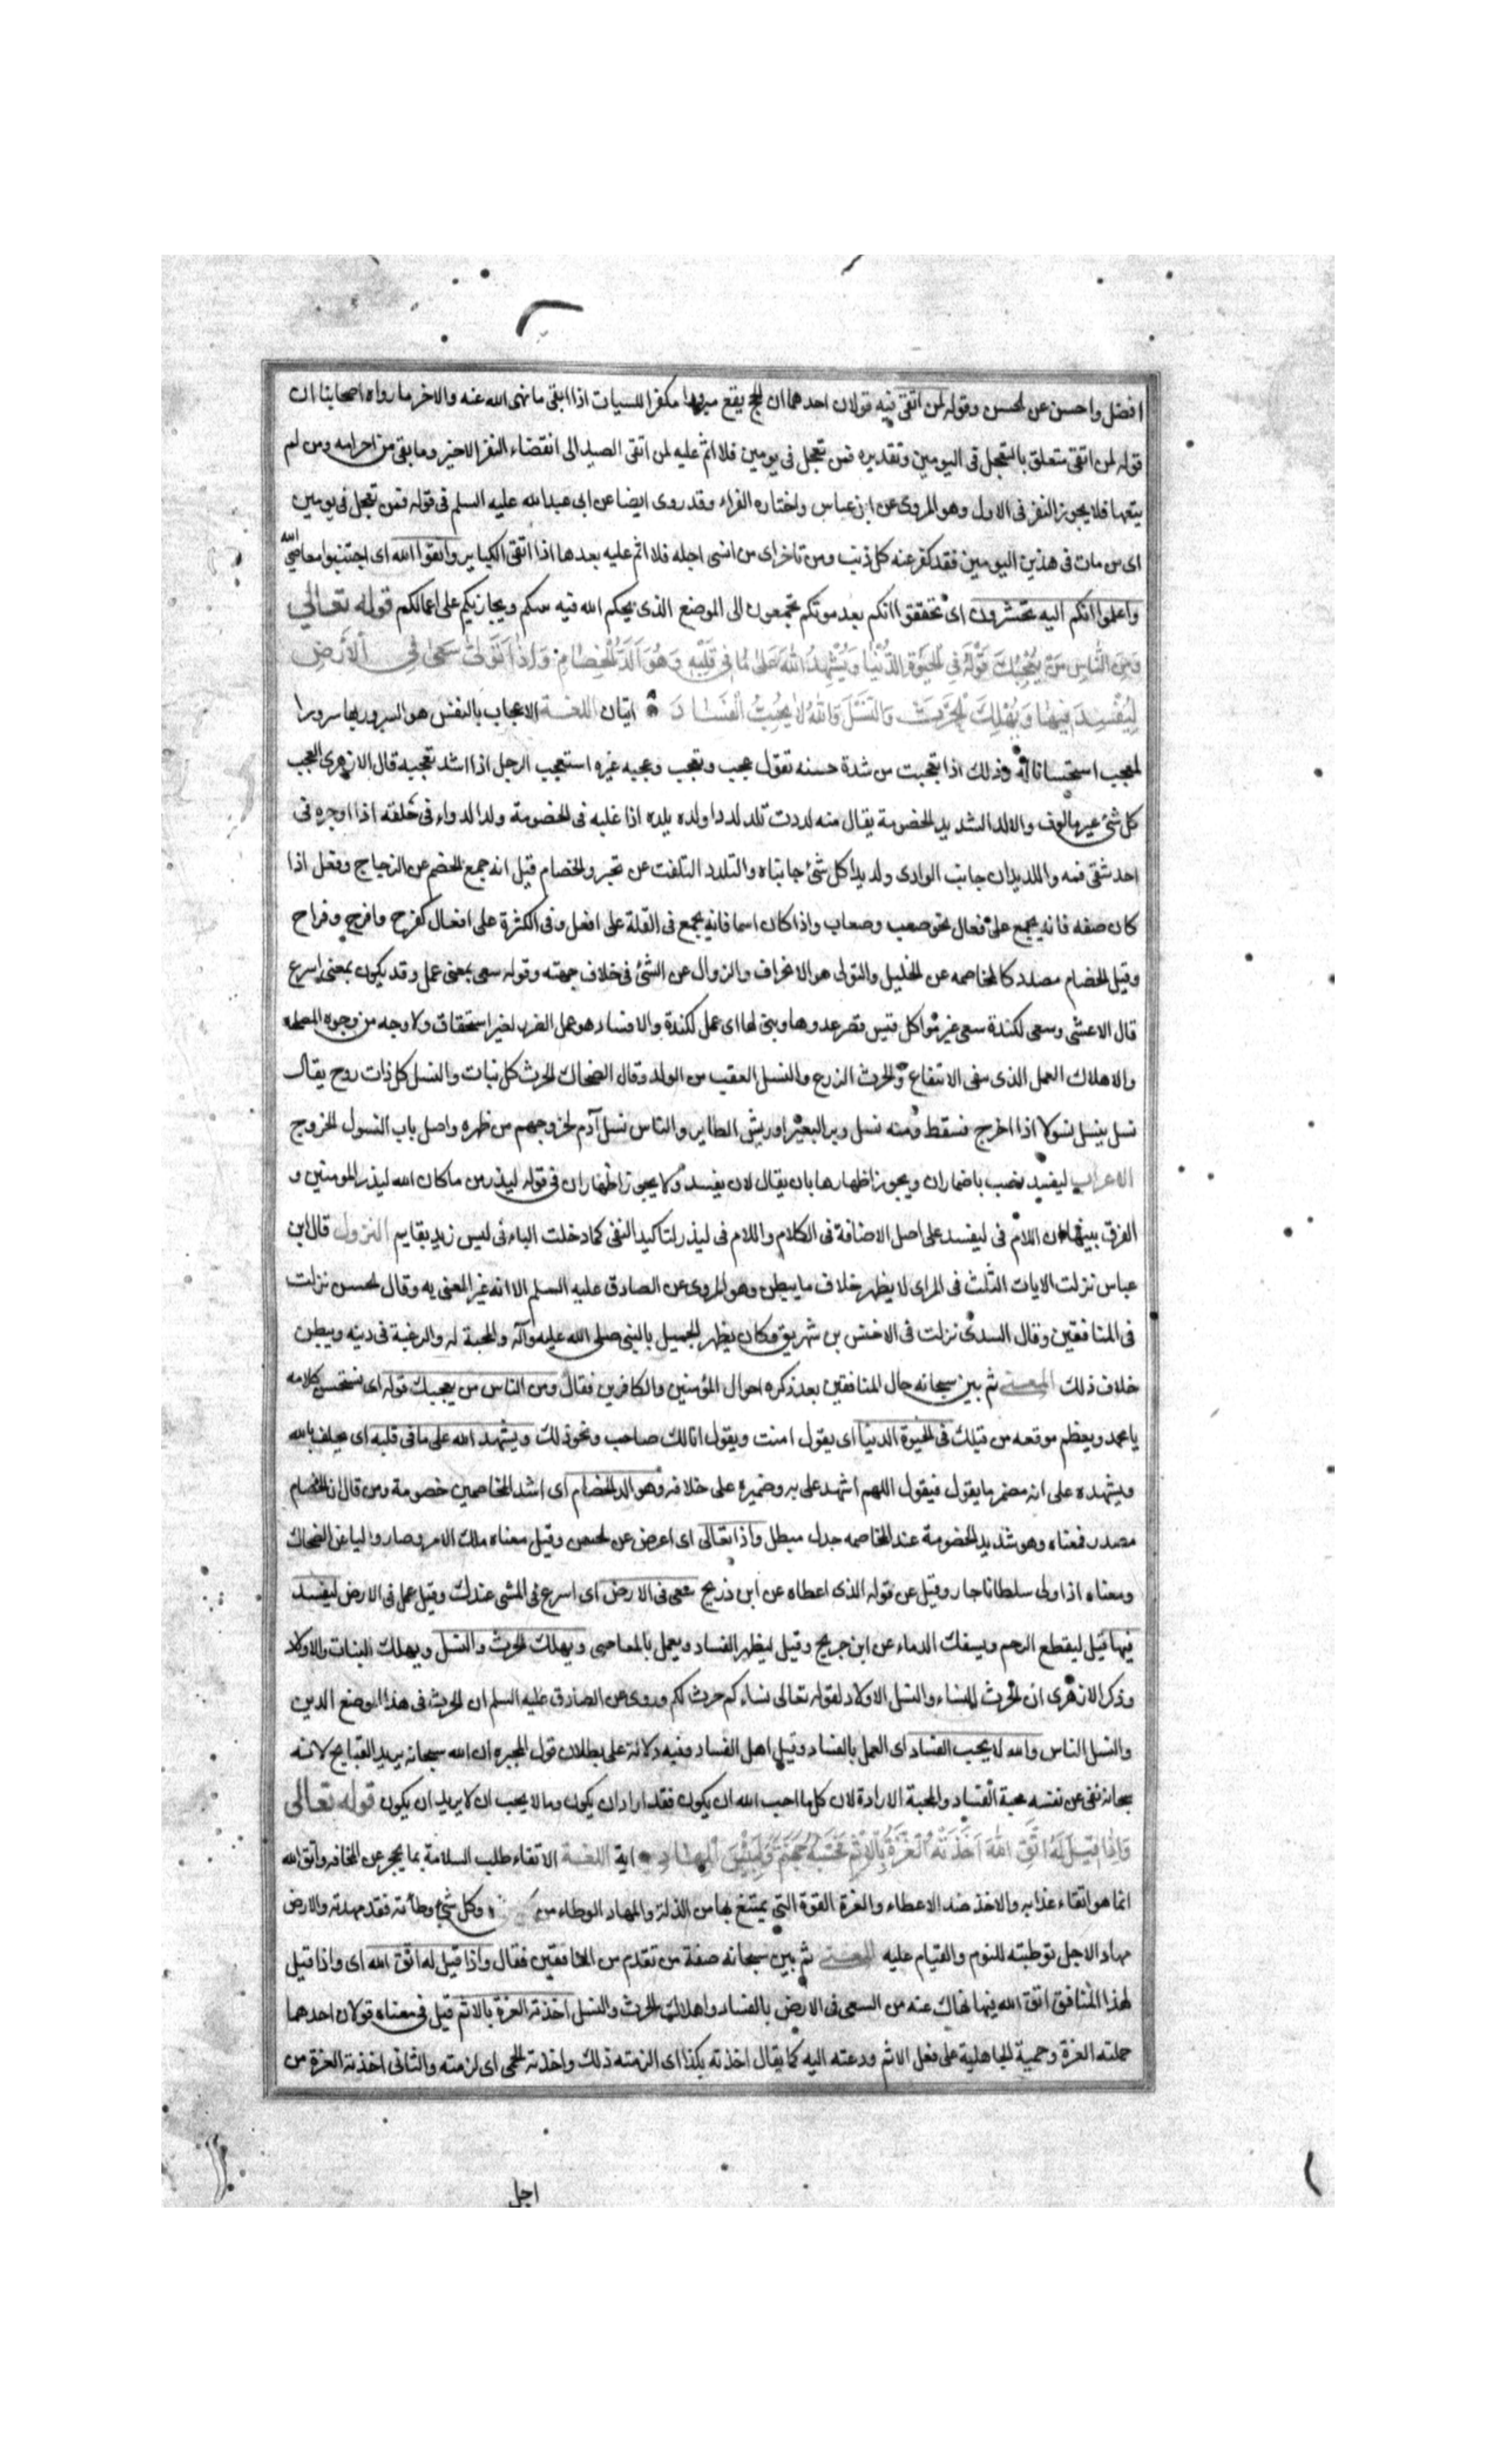 افضل واحسن عن الحسن وقوله لمن اتقى فيه قولان احدهما ان الحج يقع مبرورا مكفرا للسيات اذا اتقى ما نهى الله عنه والاخر ما رواه اصحابنا ان
قوله لمن اتقى متعلق بالتعجل فى اليومين وتقديره فمن تعجل فى يومين فلا اثم عليه لمن اتقى الصيد الى انقضاء النفر الاخير وما بقى من احرامه ومن لم
يتقها فلا يجوز النفر فى الاول وهو المروى عن ابن عباس واختاره الفراء وقد روى ايضا عن ابى عبد الله عليه السلم فى قوله فمن تعجل فى يومين
اى من مات فى هذين اليومين فقد كفر عنه كل ذنب ومن تاخر اى من انسى اجله فلا اثم عليه بعدها اذا اتقى الكباير واتقوا الله اى اجتنبوا معاصى الله
واعلموا انكم اليه تحشرون اى تحققوا انكم بعد موتكم تجمعون الى الموضع الذى يحكم الله فيه بينكم ويجازيكم على اعمالكم قوله تعالى
وَمِنَ النَّاسِ مَنْ يُعْجِبُكَ قَوْلُهُ فِى الْحَيٰوةِ الدُّنْيَا وَيُشْهِدُ اللهَ عَلىٰ مَا فِى قَلْبِهِ وَهُوَ اَلَدُّ الْخِصَامِ وَاِذَا تَوَلّىٰ سَعىٰ فِى الْاَرْضِ
لِيُفْسِدَ فِيهَا وَيُهْلِكَ الْحَرْثَ وَالنَّسْلَ وَاللهُ لَا يُحِبُّ الْفَسَادَ ايتان اللغة الاعجاب بالنفس هو السرور بها سرورا
لعجب استحسانا له وذلك اذا تعجبت من شدة حسنه تقول عجب وتعجب وعجبه غيره استعجب الرجل اذا اشد تعجبه قال الازهرى العجب
كل شئ غير مالوف والالد الشديد الخصومة يقال منه لددت تلد لددا ولده يلده اذا غلبه فى الخصومة ولد الدواء فى حلقه اذا اوجره فى
احد شقى فمه واللديدان جانبا الوادى ولديدا كل شئ جانباه والتلدد التلفت عن تحير والخصام قيل انه جمع الخصم عن الزجاج وفعل اذا
كان صفه فانه يجمع على فعال نحو صعب وصعاب واذا كان اسما فانه يجمع فى القلة على افعل وفى الكثرة على افعال كفرخ وافرخ وفراخ
وقيل الخصام مصدر كالمخاصمه عن الخليل والتولى هو الانحراف والزوال عن الشئ فى خلاف جهته وقوله سعى بمعنى عمل وقد يكون بمعنى اسرع
قال الاعشى وسعى لكندة سعى غير مواكل قيس فضر عدوها وبنى لها اى عمل لكندة والافساد هو عمل الضرر لغير استحقاق ولا وجه من وجوه المصلحه
والاهلاك العمل الذى ينفى الانتفاع والحرث الزرع والنسل العقب من الولد وقال الضحاك الحرث كل نبات والنسل كل ذات روح يقال
نسل ينسل نسولا اذا اخرج فسقط ومنه نسل وبر البعير او ريش الطاير والناس نسل آدم لخروجهم من ظهره واصل باب النسول الخروج
الاعراب ليفسد نصب باضمار ان ويجوز اظهارها بان يقال لان يفسد ولا يجوز اظهار ان فى قوله ليذر من ما كان الله ليذر المومنين و
الفرق بينهما ان اللام فى ليفسد على اصل الاضافة فى الكلام واللام فى ليذر لتاكيد النفى كما دخلت الباء فى ليس زيد بقايم النزول قال ابن
عباس نزلت الايات الثلث فى المراى لا يظهر خلاف ما يبطن وهو المروى عن الصادق عليه السلم الا انه غير المعنى به وقال الحسن نزلت
فى المنافقين وقال السدى نزلت فى الاخنس بن شريق وكان يظهر الجميل بالنبى صلى الله عليه وآله والمحبة له والرغبة فى دينه ويبطن
خلاف ذلك المعنى ثم بين سبحانه حال المنافقين بعد ذكره احوال المؤمنين والكافرين فقال ومن الناس من يعجبك قوله اى تستحسن كلامه
يا محمد ويعظم موقعه من قبلك فى الحيوة الدنيا اى يقول امنت ويقول انا لك صاحب ونحو ذلك ويشهد الله على ما فى قلبه اى يحلف بالله
ويشهده على انه مضمر ما يقول فيقول اللهم اشهد على به وضميره على خلافه وهو الد الخصام اى اشد المخاصمين خصومة ومن قال ان الخصام
مصدر فمعناه وهو شديد الخصومة عند المخاصمه جدل مبطل واذا تعالى اى اعرض عن الحسن وقيل معناه ملك الامر وصار واليا عن الضحاك
ومعناه اذا ولى سلطانا جار وقيل عن قوله الذى اعطاه عن ابن ذريح سعى فى الارض اى اسرع فى المشى عندك وقيل عمل فى الارض ليفسد
فيها قيل ليقطع الرحم ويسفك الدماء عن ابن جريج وقيل ليظهر الفساد ويعمل بالمعاصى ويهلك الحرث والنسل ويهلك النبات والاولاد
وذكر الازهرى ان الحرث النساء والنسل الاولاد لقوله تعالى نساءكم حرث لكم وروى عن الصادق عليه السلم ان الحرث فى هذا الموضع الدين
والنسل الناس والله لا يحب الفساد اى العمل بالفساد وقيل اهل الفساد وفيه دلالة على بطلان قول المجبره ان الله سبحانه يريد القبايح لانه
سبحانه نفى عن نفسه محبة الفساد والمحبة الارادة لان كل ما احب الله ان يكون فقد اراد ان يكون وما لا يحب ان لا يريد ان يكون قوله تعالى
وَاِذَا قِيلَ لَهُ اتَّقِ اللهَ اَخَذَتْهُ الْعِزَّةُ بِالْاِثْمِ فَحَسْبُهُ جَهَنَّمُ وَلَبِئْسَ الْمِهَادُ اية اللغة الاتقاء طلب السلامة بما يحجز عن المخافه واتق الله
انما هو اتقاء عذابه والاخذ ضد الاعطاء والعزة القوة التى يمتنع بها من الذلة والمهاد الوطاء من وكل شئ وطأته فقد مهدته والارض
مهاد لاجل توطئته للنوم والقيام عليه المعنى ثم بين سبحانه صفة من تقدم من المنافقين فقال واذا قيل له اتق الله اى واذا قيل
لهذا المنافق اتق الله فيما نهاك عنه من السعى فى الارض بالفساد واهلاك الحرث والنسل اخذته العزة بالاثم قيل فى معناه قولان احدهما
حملته العزة وحمية الجاهلية على فعل الاثم ودعته اليه كما يقال اخذته بكذا اى الزمته ذلك واخذته الحمى اى لزمته والثانى اخذته العزة من
اجل